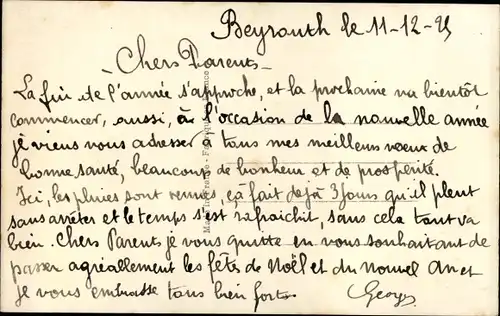 Beyrouth le 11-12-25
Chers Parents -
La fin de l'année s'approche, et la prochaine va bientôt
commencer, aussi, à l'occasion de la nouvelle année
je viens vous adresser à tous mes meilleurs voeux de
bonne santé, beaucoup de bonheur et de prospérité.
Ici, les pluies sont venues, ça fait déjà 3 jours qu'il pleut
sans arrêter et le temps s'est rafraichit, sans cela tout va
bien. Chers Parents je vous quitte en vous souhaitant de
passer agréallement les fêtes de Noël et du nouvel an et
je vous embrasse tous bien fort.
Georges